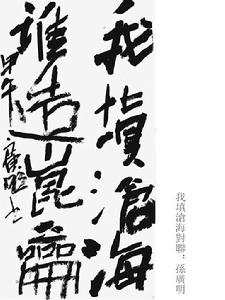 我填滄海
誰造崑崙
甲午
廣明
我填滄海對聯：孫廣明